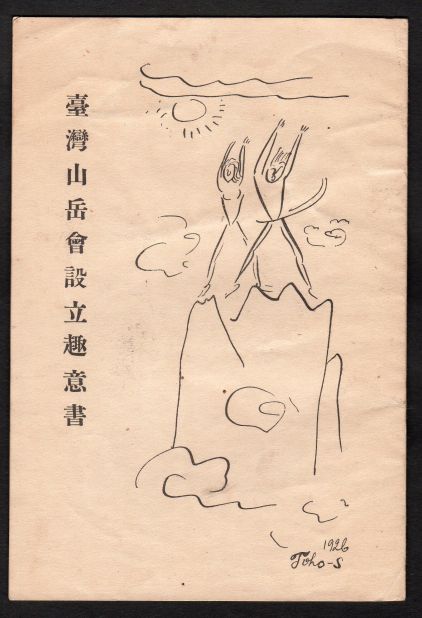 臺灣山岳會設立趣意書
1926
Toho-S